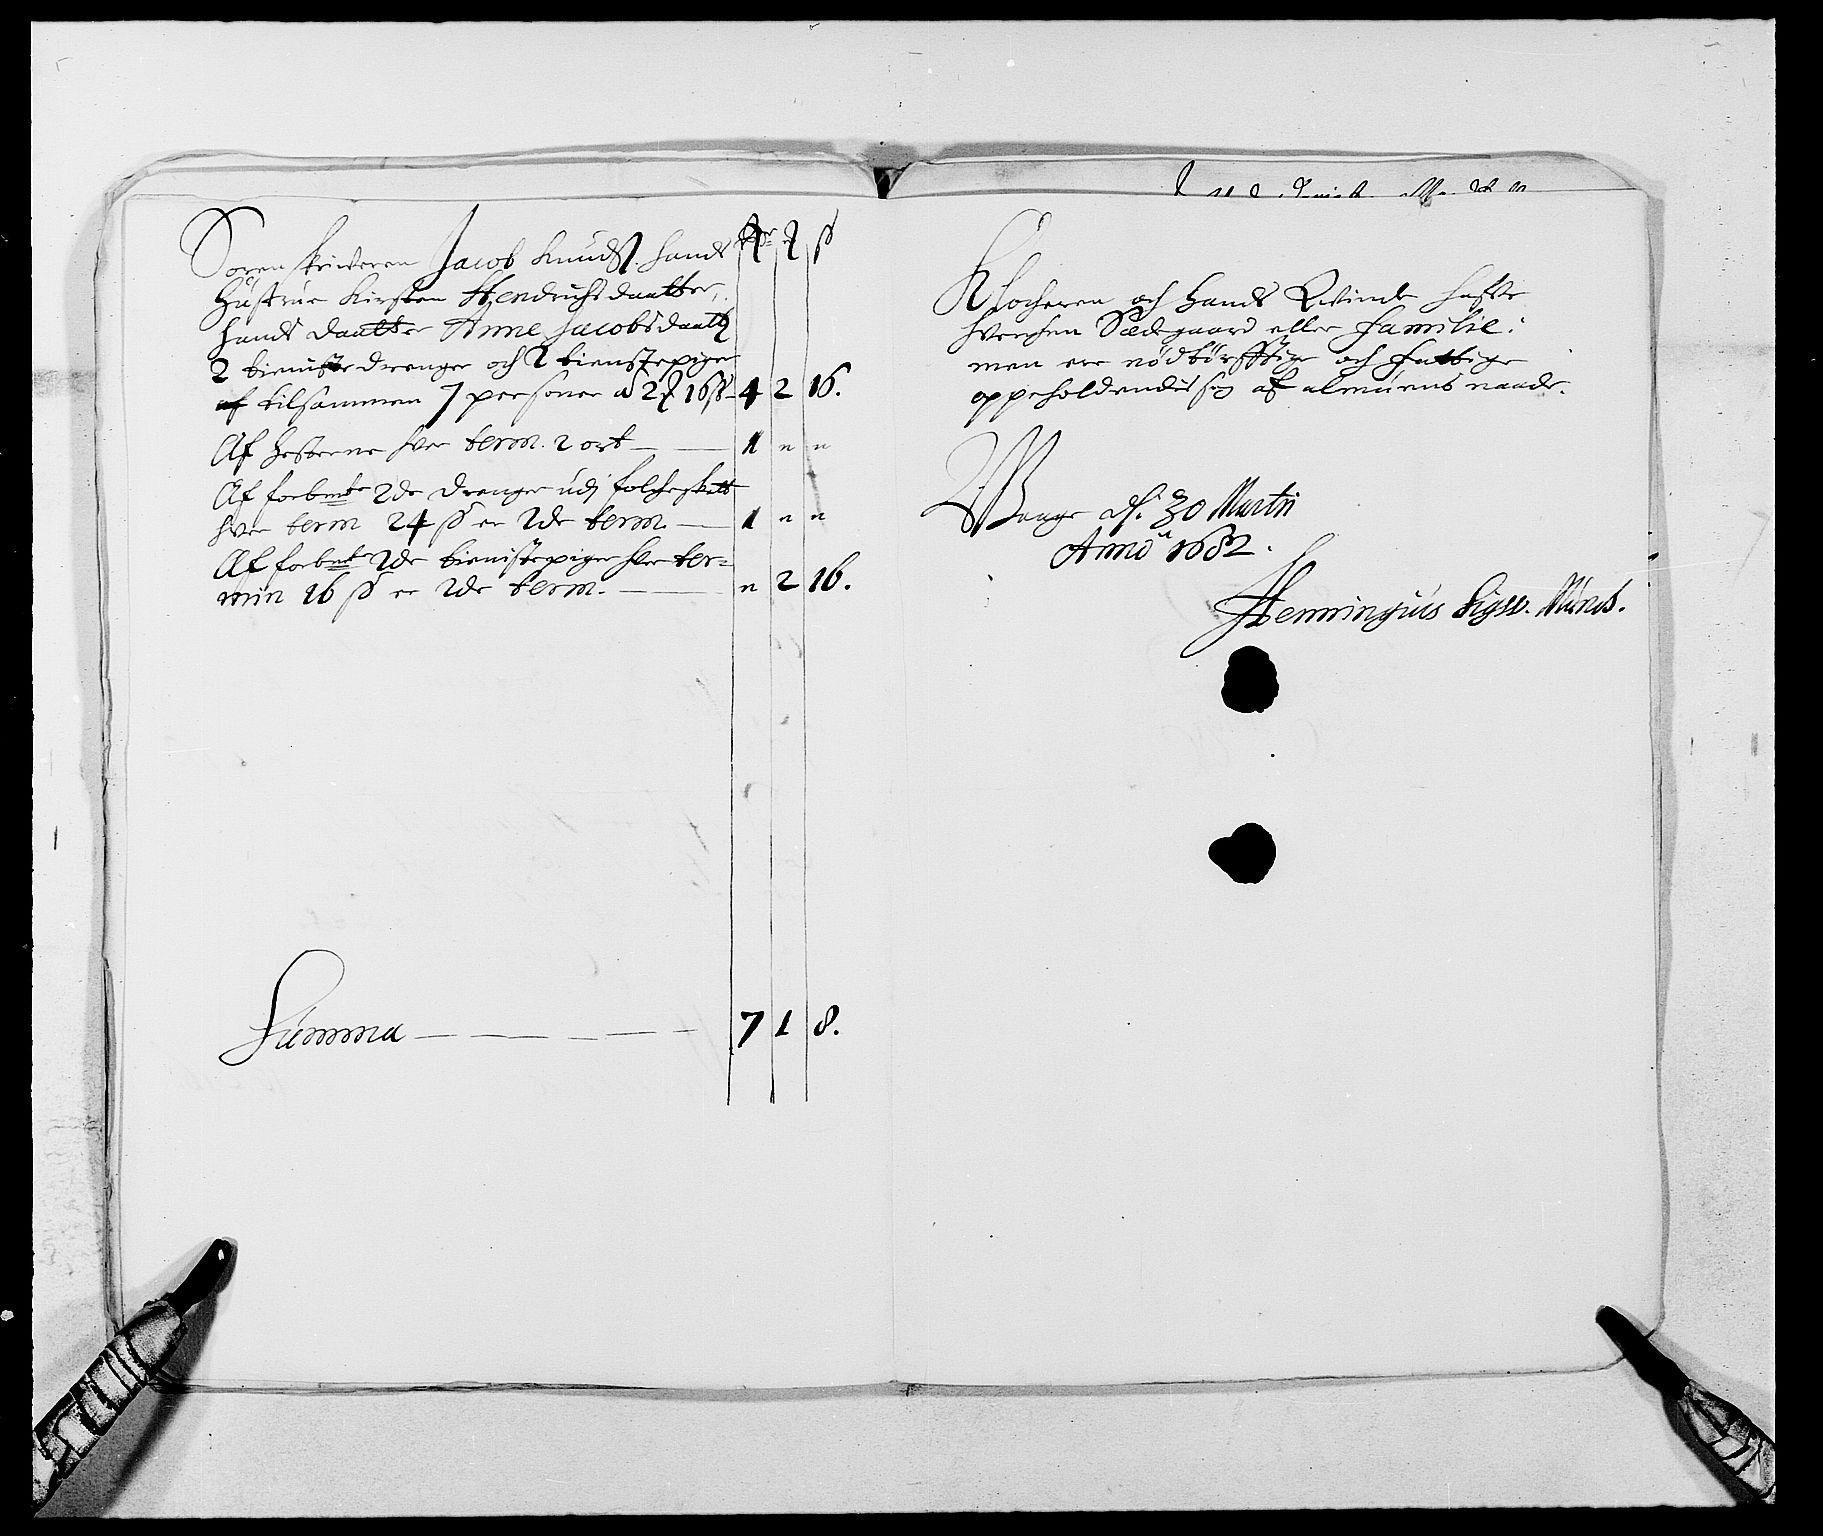 Rdr ℳ ß
Sorenskriveren Jacob Knuds. hands
Hústrúe Kirsten Hendrichsdaatter,
hands daatter Anne Jacobsdaatt
2 tieniste drenger och 2 tienistepiger
tilsammen 7 personer a 2 ℳ 16 ß – 4 2 16.
Af hesterne hver term. 2 ort — 1 n n
Af forbmte 2de drenger udj folcheskatt
hver term 24 ß er 2de term. — 1 n n
Af forbmte 2de tienistepiger hver ter-
min 16 ß er 2de term. — n 2 16.
Súmma — 7 1 8.
Klocheren och hands Qvinde hafve
hverchen Sædegaard eller familie:
men ere nödtörfftige och fattige
oppeholdendis sig af almúens naade.
Vange d. 30 Martii
Anno 1682.
Henningús Sigv. Múnch.